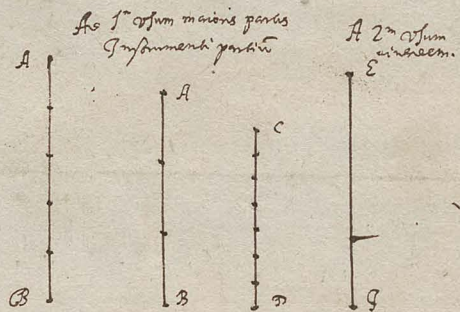 Ad 1m Vsum maioris partis
Instrumenti partium
A 2m Vsum
eiusdem.
A
A
C
E
B
B
D
F